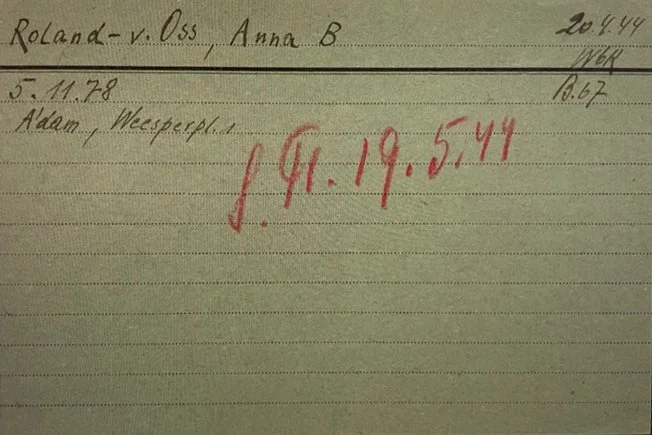 Roland-v. Oss, Anna B 20.4.44
WbK
5.11.78 B.67
A'dam, Weesperpl. 1
19.5.44